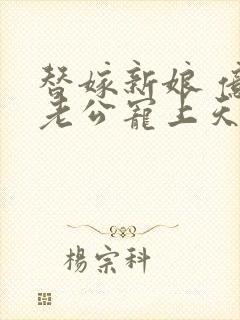 替嫁新娘 億
老公寵上天
楊宗科